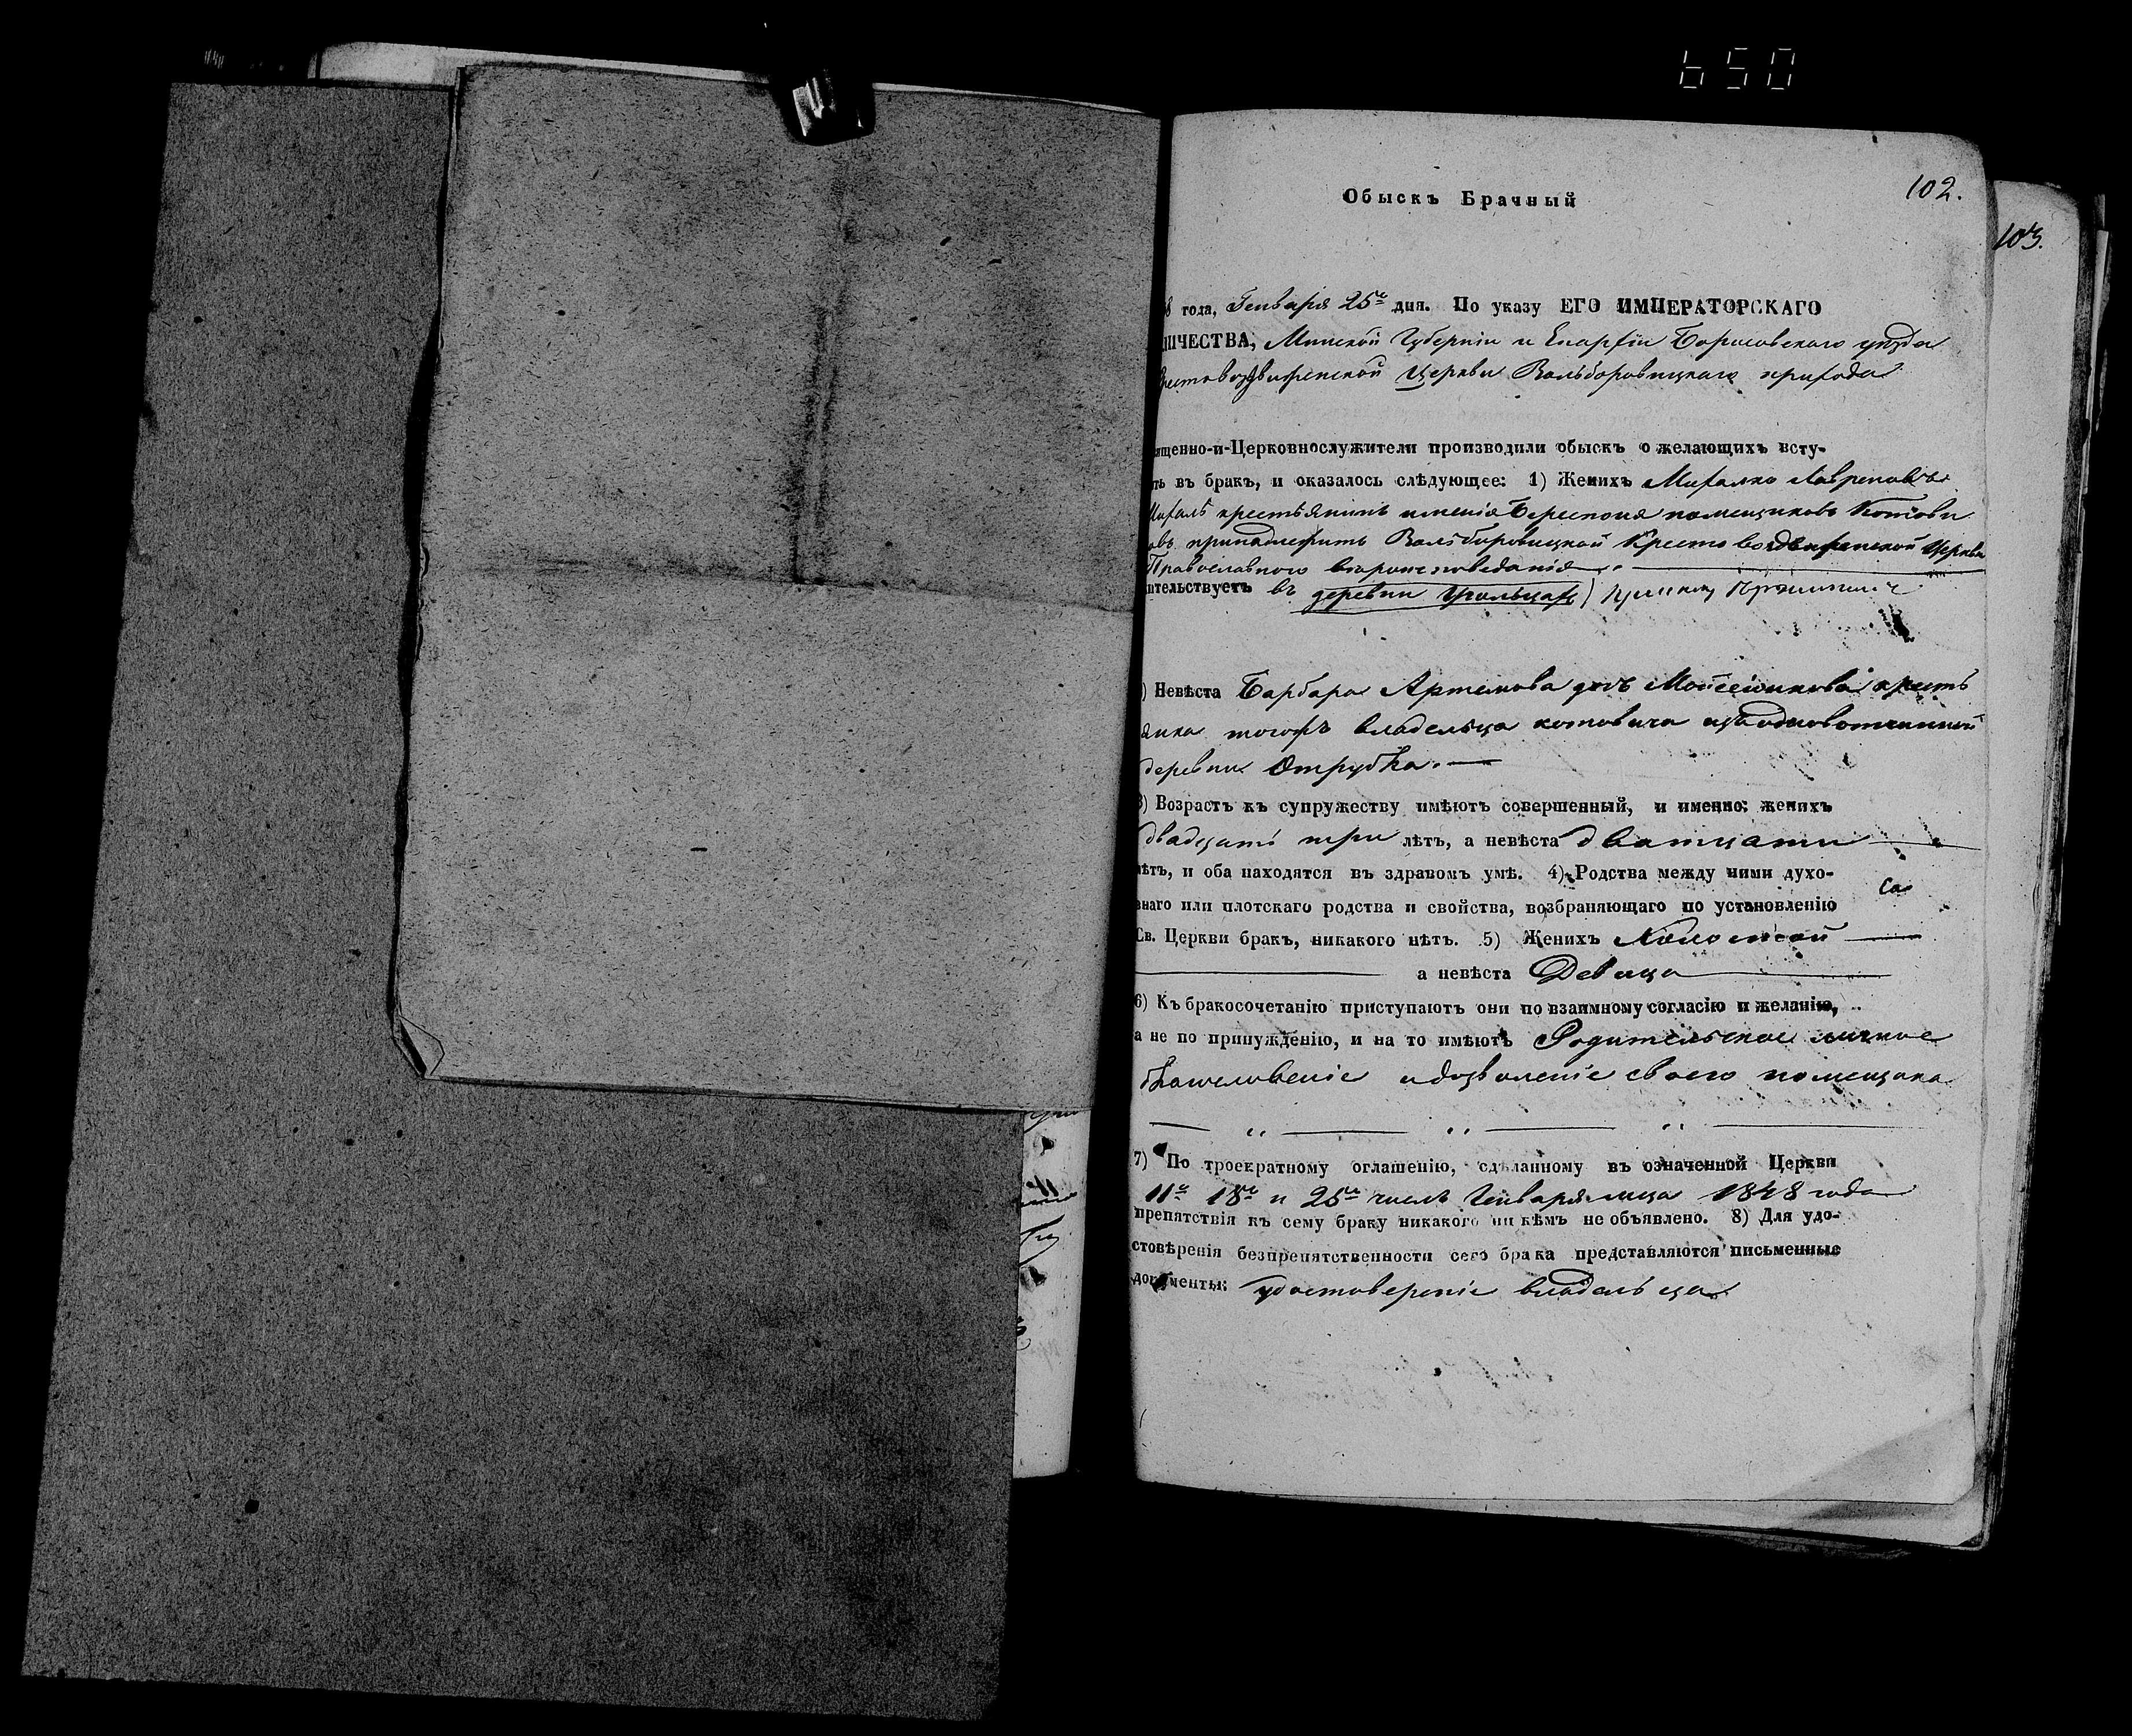 650
102.
103.
Обыскъ Брачный
года, Генваря 25го дня. По указу ЕГО ИМПЕРАТОРСКАГО
ИЧЕСТВА, Минской Губерніи и Епархіи Борисовского уезда
рестовоздвиженской Церкви Вольборовицкаго прихода
ященно-и-Церковнослужители производили обыскъ о желающихъ всту-
ть въ бракъ, и оказалось слѣдующее: 1) Женихъ Михалко Лавреновъ
крестьянинъ имения помещиковъ Котови
овъ принадлежитъ Вольборовицкой Крестовоздвиженской Церкви
Православного вероисповедания
ительствуетъ въ деревни
) Невѣста Барбара Артемова дочь кресть
янка тогожъ владельца котовича изъ одновотчинной
деревни Отрубка.
3) Возрастъ къ супружеству имѣютъ совершенный, и именно: женихъ
двадцать три лѣтъ, а невѣста дватцати
лѣтъ, и оба находятся въ здравомъ умѣ. 4) Родства между ними духо-
внаго или плотскаго родства и свойства, возбраняющаго по установленію
Св. Церкви бракъ, никакого нѣтъ. 5) Женихъ Холостой
а невѣста Девица
6) Къ бракосочетанію приступаютъ они по взаимному согласію и желанію,
а не по принужденію, и на то имѣютъ Родительское личное
благословеніе и дозволеніе своего помещика
7) По троекратному оглашенію, сдѣланному въ означенной Церкви
11го 18го и 25го числъ Генваря м-ца 1848 года
препятствія къ сему браку никакого ни кѣмъ не объявлено. 8) Для удо-
стовѣренія безпрепятственности сего брака представляются письменные
документы: удостовереніе владельца